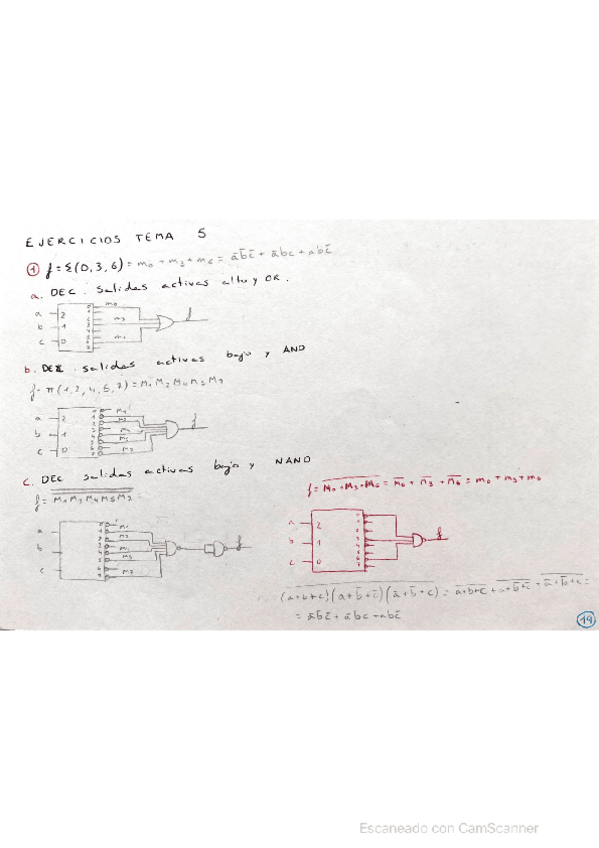 EJERCICIOS TEMA 5
① f = Σ(0,3,6) = m₀ + m₃ + m₆ = a̅b̅c̅ + a̅bc + abc̅
a. DEC. salidas activas alto y OR.
a 2 m₀
b 1 m₃ f
c 0
b. DEC salidas activas bajo y AND
f = π(1,2,4,5,7) = M₁M₂M₄M₅M₇
a 2 M₁ M₂
b 1 M₄ f
c 0 M₅ M₇
c. DEC salidas activas bajo y NAND
f = M₁M₂M₄M₅M₇
a M₁ M₂
b M₄ f
c M₅ M₇
a 2
b 1 f
c 0
(a+b+c)(a+b̅+c̅)(a̅+b̅+c) = a+b+c + a+b̅+c̅ + a̅+b̅+c =
= a̅b̅c̅ + a̅bc + abc̅
19
Escaneado con CamScanner